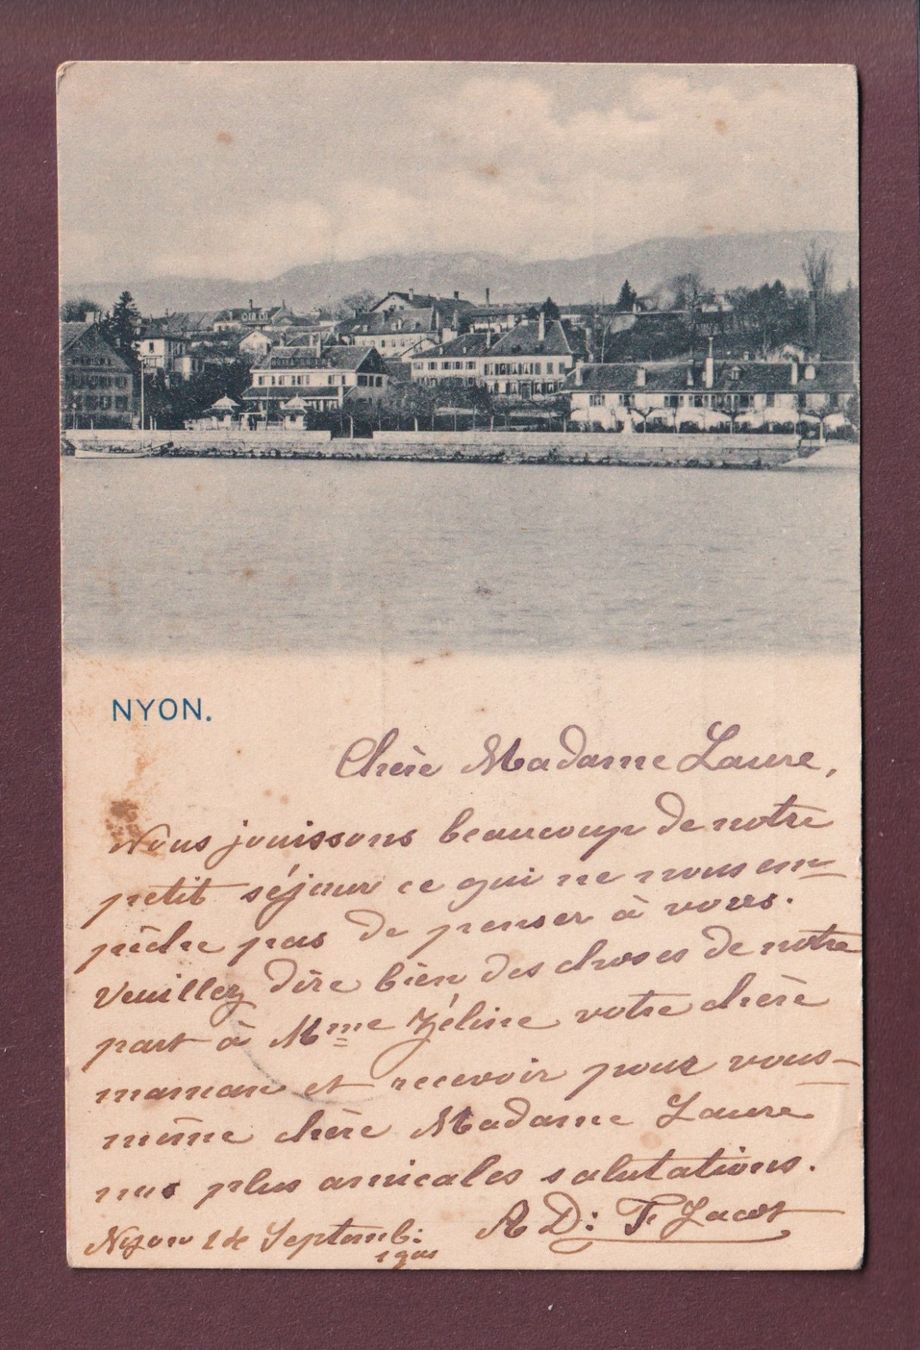 NYON.
Chère Madame Laure,
Nous jouissons beaucoup de notre
petit séjour ce qui ne nous em-
pêche pas de penser à vous.
Veuillez dire bien des choses de notre
part à Mme Zéline votre chère
maman et recevoir pour vous-
même chère Madame Laure
nos plus amicales salutations.
A D: F Jacot
Nyon 14 Septemb: